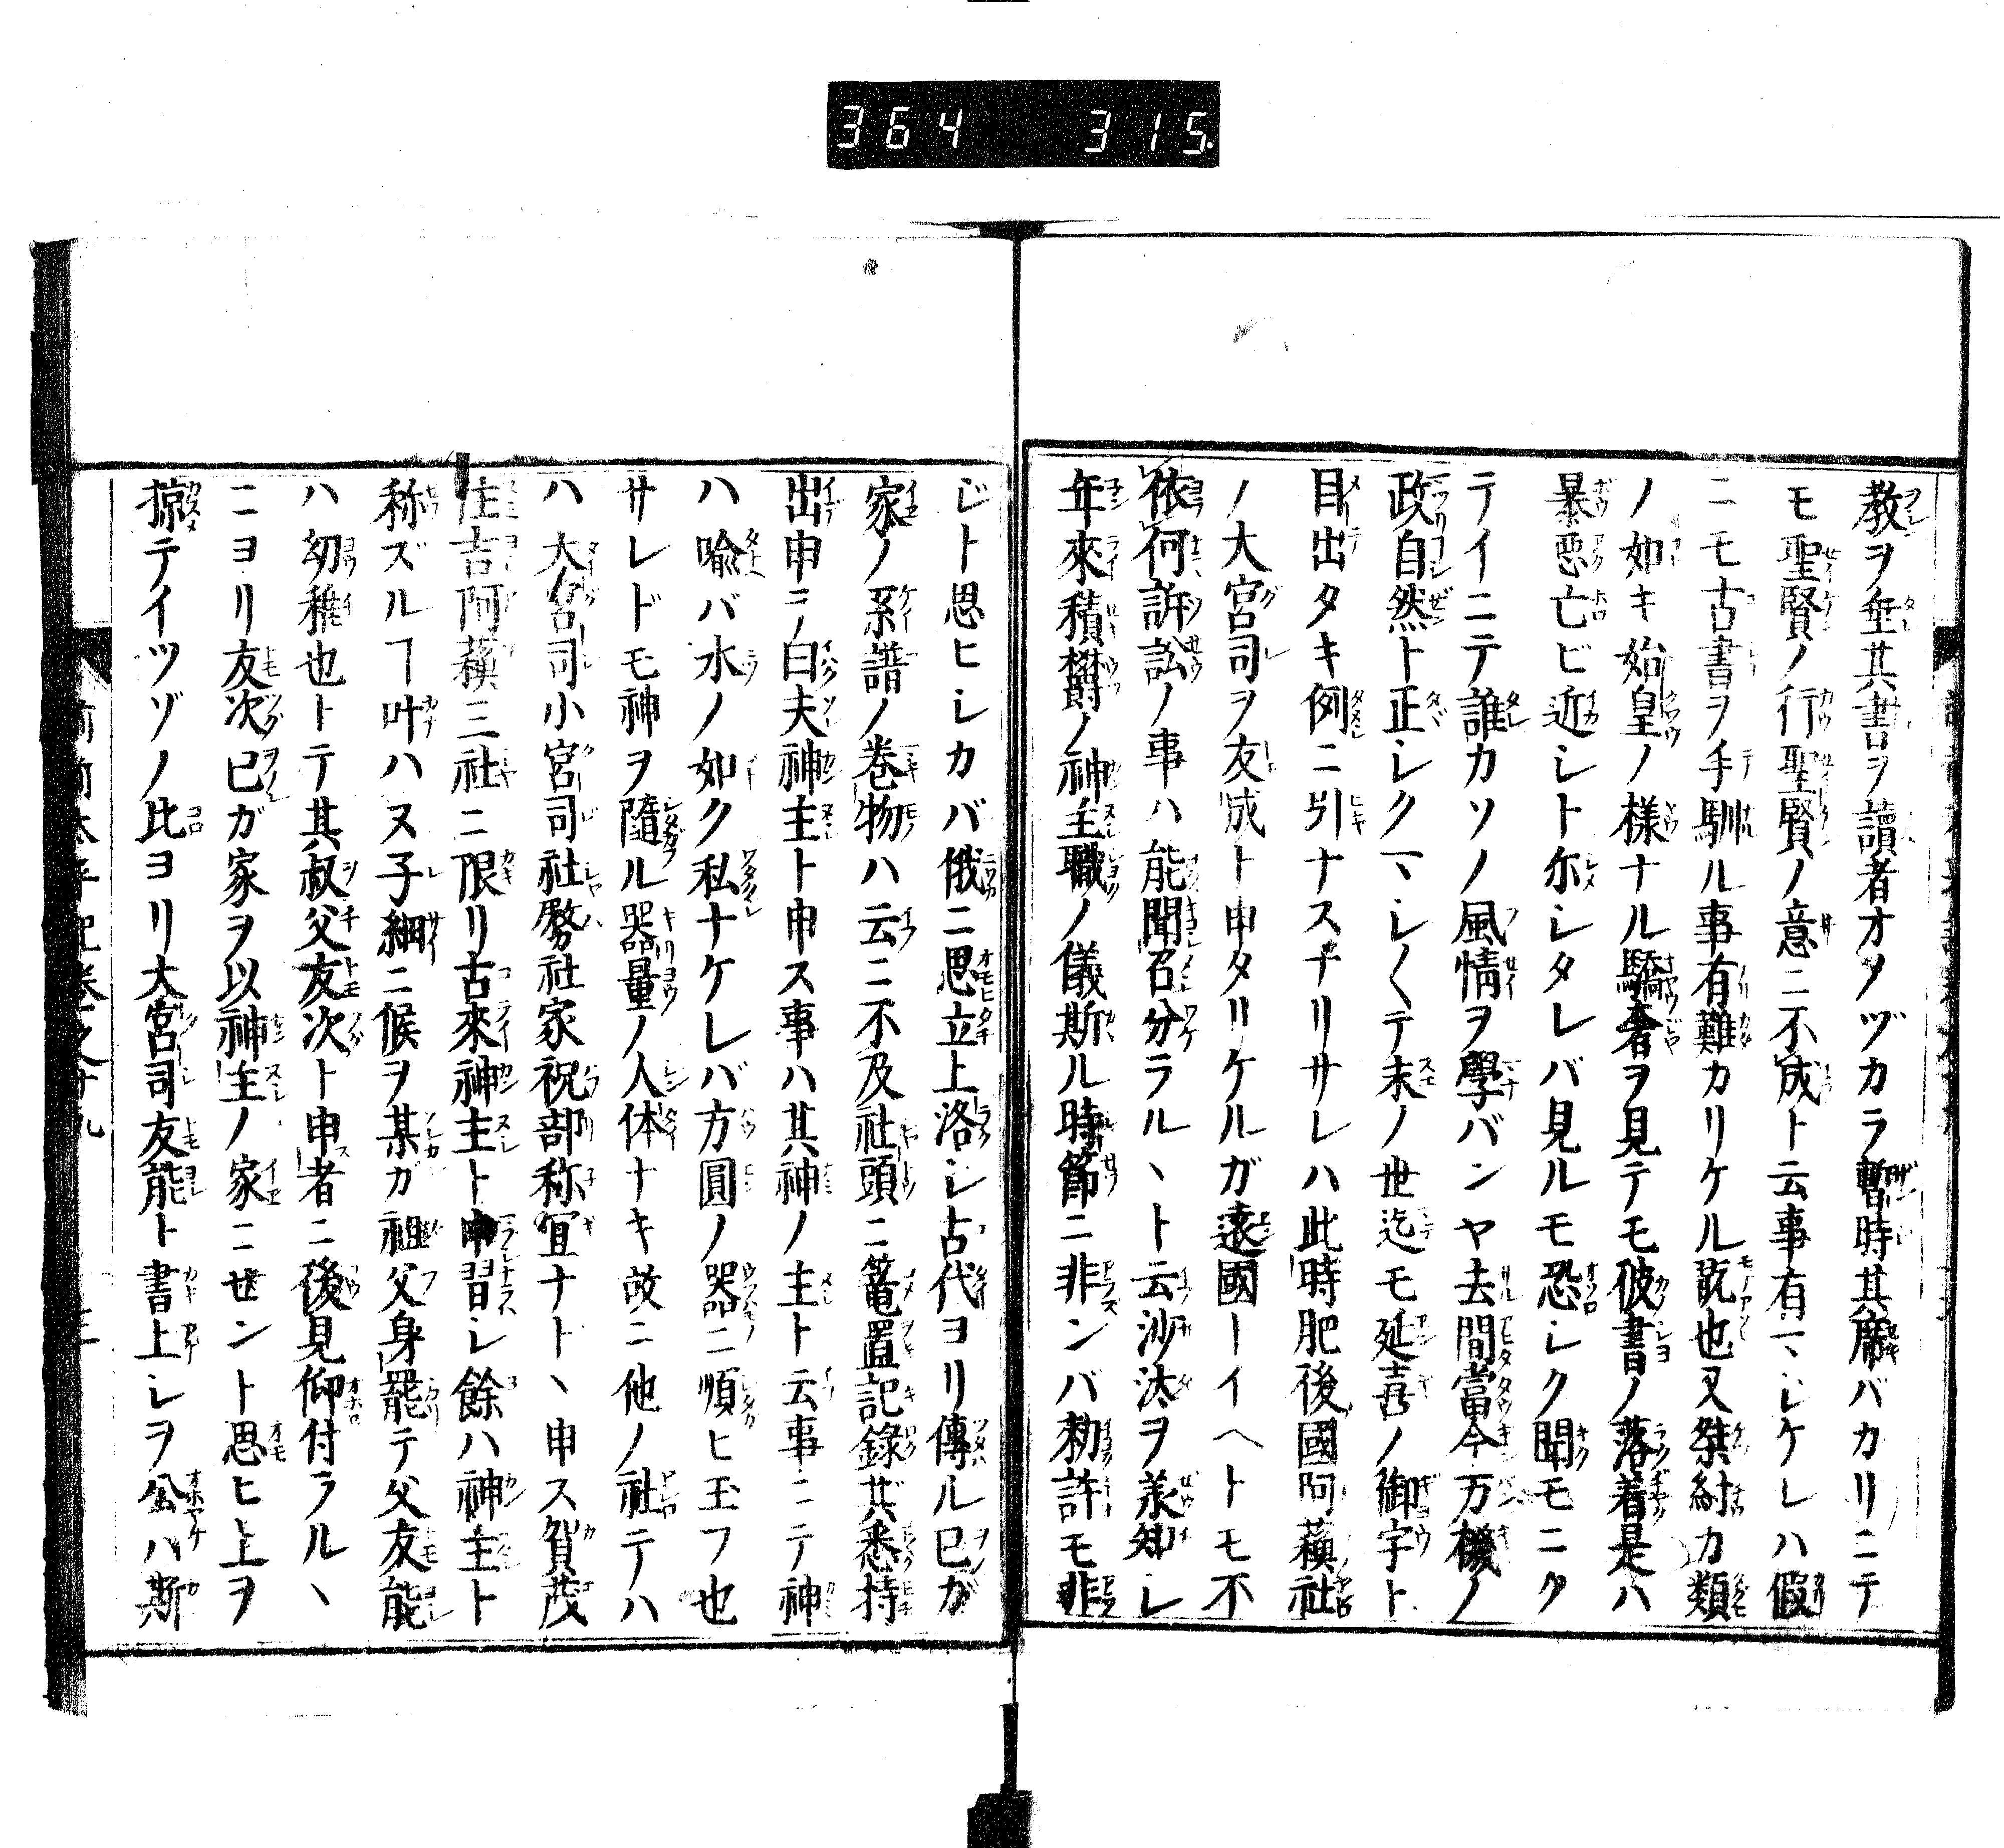 364 315.
教ヲ垂其書ヲ讀者オノヅカラ暫時其廓バカリニテ
モ聖賢ノ行聖賢ノ意ニ不成ト云事有マシケレハ假
ニモ古書ヲ手馴ル事有難カリケル翫也又桀紂カ類
ノ如キ始皇ノ様ナル驕奢ヲ見テモ彼書ノ落着是ハ
暴悪亡ビ近シト尓シタレバ見ルモ恐シク聞モニク
テイニテ誰カソノ風情ヲ學バンヤ去間當今万機ノ
政自然ト正シクマシ〱テ末ノ世迄モ延喜ノ御宇ト
目出タキ例ニ引ナスナリサレハ此時肥後國阿蘓社
ノ大宮司ヲ友成ト申タリケルガ遠國トイヘトモ不
依何訴訟ノ事ハ能聞召分ラルヽト云沙汰ヲ羕知シ
年來積欝ノ神主職ノ儀斯ル時節ニ非ンバ勅許モ非
ジト思ヒシカバ俄ニ思立上洛シ古代ヨリ傳ル巳ガ
家ノ系譜ノ巻物ハ云ニ不及社頭ニ篭置記録其悉持
出申ヿノ白夫神主ト申ス事ハ其神ノ主ト云事ニテ神
ハ喩バ水ノ如ク私ナケレバ方圓ノ器ニ順ヒ玉フ也
サレドモ神ヲ隨ル器量ノ人体ナキ故ニ他ノ社テハ
ハ大宮司小宮司社務社家祝部称宜ナトヽ申ス賀茂
住吉阿蘓三社ニ限リ古來神主ト申習シ餘ハ神主ト
称ズルヿ叶ハヌ子細ニ候ヲ某ガ祖父身罷テ父友能
ハ幼稚也トテ其叔父友次ト申者ニ後見仰付ラルヽ
ニヨリ友次巳ガ家ヲ以神主ノ家ニせント思ヒ上ヲ
掠テイツゾノ比ヨリ大宮司友能ト書上シヲ公ハ斯
前前太平記巻之十九